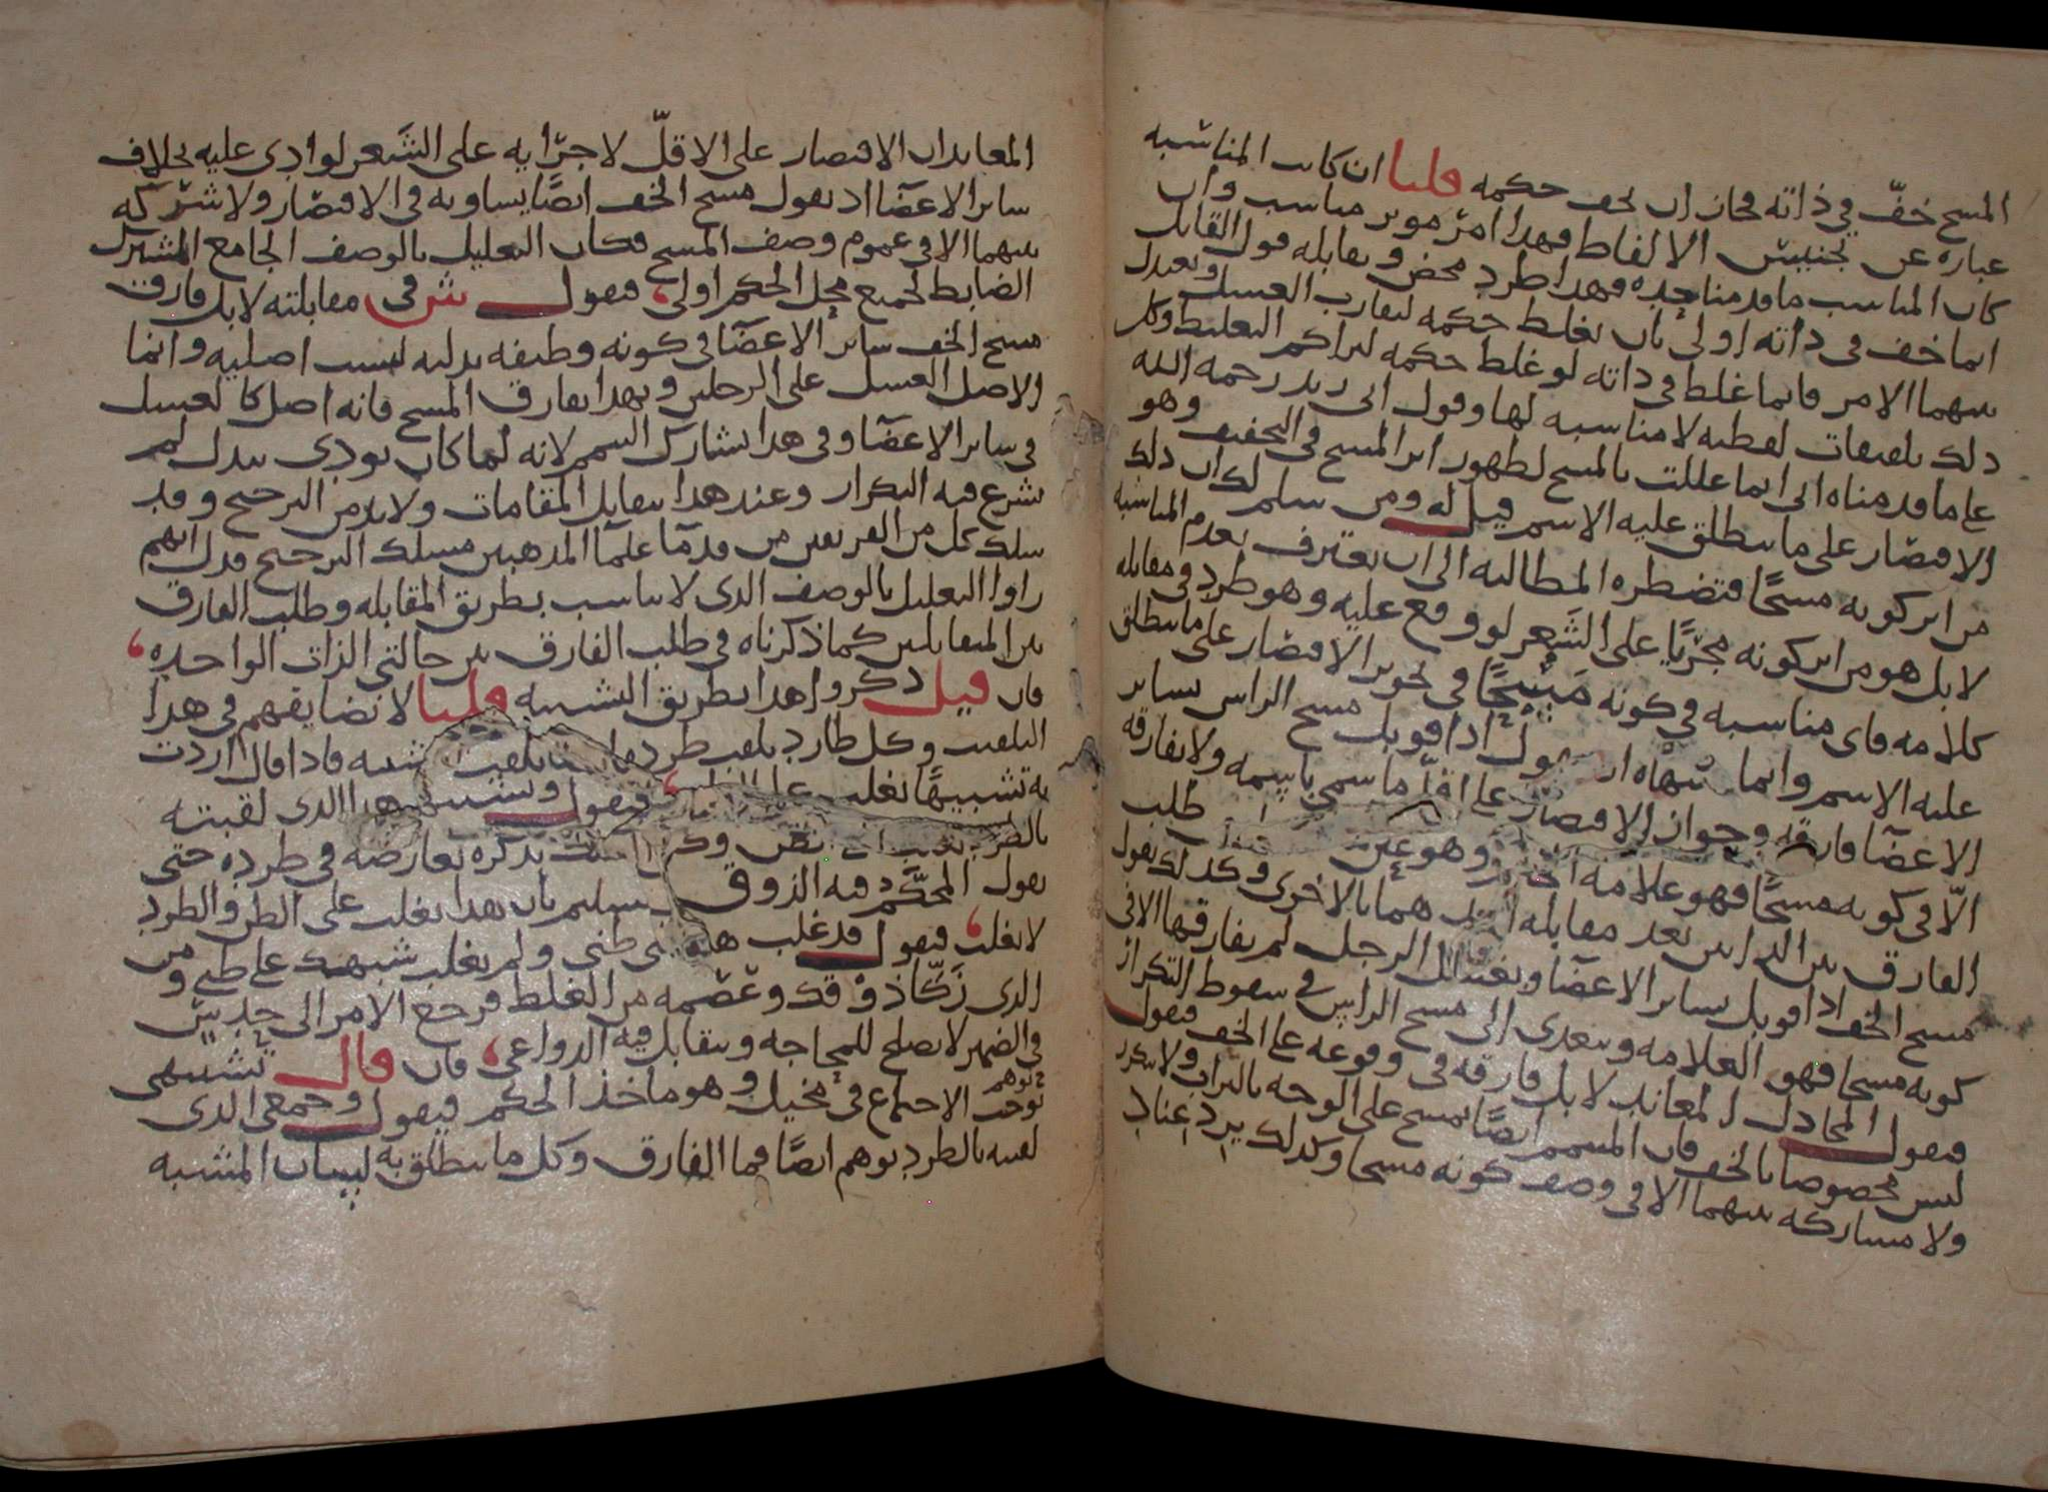 المسح خفّ في ذاته فجاز ان يخف حكمه قلنا ان كانت المناسبه
عباره عن تجنيس الالفاظ فهذا امر موثر مناسب وان
كان المناسب ما قدمناه فهذا طرد محض ويقابله قول القايل
انما خف في ذاته اولى بان يغلظ حكمه ليقارب الغسل ويعتدل
بينهما الامر فانما غلظ في ذاته لو غلظ حكمه لتراكم التغليظ وكل
ذلك تلفيقات لفظيه لا مناسبه لها وقول ابي زيد رحمه الله
على ما قدمناه اني انما عللت بالمسح لظهور اثر المسح في التخفيف وهو
الاقتصار على ما ينطلق عليه الاسم قيل له ومن سلم لك ان ذلك
من اثر كونه مسحًا فتضطره المطالبه الى ان يعترف بعدم المناسبه
لا بل هو من اثر كونه مجزيًا على الشَعر لو وقع عليه وهو طرد في مقابله
كلامه فاي مناسبه في كونه مَسْحًا في تجويز الاقتصار على ما ينطلق
عليه الاسم وانما منتهاه ان يقول اذا قوبل مسح الراس بساير
الاعضا فارقه وجواز الاقتصار على اقل ما سمي باسمه ولا يفارقه
الّا في كونه مسحًا فهو علامه وهو عين طلب
الفارق بين الذاتين بعد مقابله احديهما بالاخرى وكذلك يقول
مسح الخف اذا قوبل بساير الاعضا وبغسل الرجل لم يفارقها الا في
كونه مسحا فهو العلامه ويتعدى الى مسح الراس في سقوط التكرار
فيقول المجادل المعاند لا بل فارقه في وقوعه على الخف فيقول
ليس مخصوصا بالخف فان المتيمم ايضًا يمسح على الوجه بالتراب ولا يتكرر
ولا مشاركه بينهما الا في وصف كونه مسحا وكذلك يرد عناد
المعاند ان الاقتصار على الاقلّ لاجزايه على الشَعر لو ادي عليه بخلاف
ساير الاعضا اذ يقول مسح الخف ايضًا يساويه في الاقتصار ولا شركه
بينهما الا في عموم وصف المسح فكان التعليل بالوصف الجامع المشترك
الضابط لجميع محل الحكم اولى فيقول ش في مقابلته لا بل فارق
مسح الخف ساير الاعضا في كونه وظيفه بدليه ليست اصليه وانما
الاصل الغسل على الرجلين وبهذا يفارق المسح فانه اصل كالغسل
في ساير الاعضا وفي هذا يشارك التيمم لانه لما كان يودى ببدل لم
يشرع فيه التكرار وعند هذا يتقابل المقامات ولا بد من الترجيح وقد
سلك كل من الفريقين من قدما علما المذهبين مسلك الترجيح فدل انهم
راوا التعليل بالوصف الذي لا يناسب بطريق المقابله وطلب الفارق
بين المتقابلين كما ذكرناه في طلب الفارق بين حالتي الذات الواحده
فان قيل ذكروا هذا بطريق الشبه قلنا لا نضايقهم في هذا
التلقيب وكل طارد يلقب طرده شبه فاذا قال اردت
به تشبيهًا يغلب على فيقول وتشبيهي هذا الذي لقبته
بالطرد يذكره يعارضه في طرده حتى
يقول المحكّم فيه الذوق بسليم بان هذا يغلب على الظن والطرد
لا يغلب فيقول قد غلب هذا على ظني ولم يغلب شبهك على ظني ومن
الذي زكّا ذوقك وعصمه من الغلط فرجع الامر الى حديث
في الضمير لا يصلح للمحاجه ويتقابل فيه الدواعي فان قال تشبيهي
يوجب توهم الاجتماع في مخيل وهو ماخذ الحكم فيقول وجمعي الذي
لقبته بالطرد يوهم ايضًا فما الفارق وكل ما ينطلق به لسان المشبه